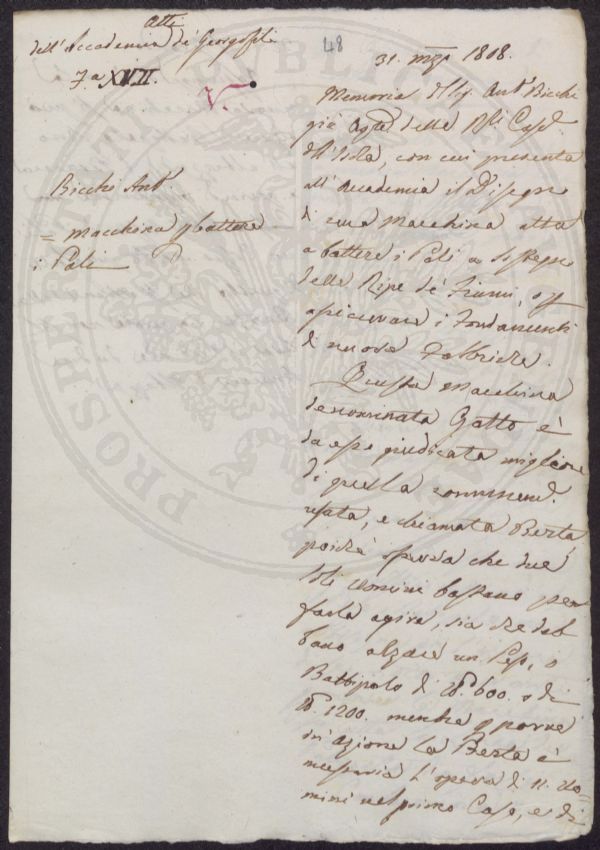 Atti
dell'Accademia de Georgofili
7.a XVII.
48
V.
Bicchi Ant.
= macchina p battere
i Pali
31. mgo 1808.
Memoria del Sig. Ant. Bicchi
già Agte delle Rli Casce
dell'Isola, con cui presenta
all'Accademia il Disegno
di una Macchina atta
a battere i Pali a
delle Ripe de Fiumi,
assicurare i Fondamenti
di nuove Fabbriche.
Questa Macchina
denominata Gatto è
da esso giudicata migliore
di quella comunemd.
usata, e chiamata Berta,
poichè osserva che due
soli uomini bastano per
farla agire, sia che deb
bano alzare un Peso, o
Battipalo di lb. 600. o di
lb. 1200. mentre p porre
in azione la Berta è
necessaria l'opera di 12. uo=
mini nel primo Caso, e di
PROSPERITATI